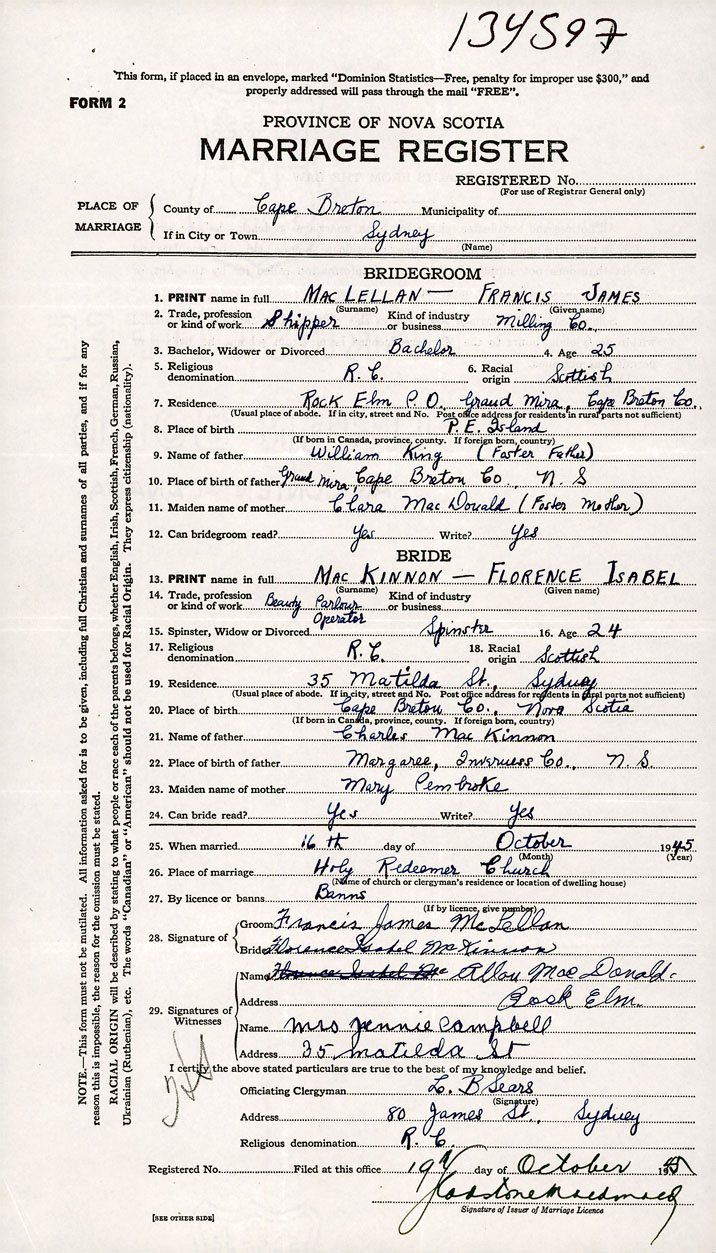 134597
This form, if placed in an envelope, marked "Dominion Statistics—Free, penalty for improper use $300," and
properly addressed will pass through the mail "FREE".
FORM 2
PROVINCE OF NOVA SCOTIA
MARRIAGE REGISTER
REGISTERED No.
(For use of Registrar General only)
PLACE OF MARRIAGE
County of Cape Breton Municipality of
If in City or Town Sydney
(Name)
BRIDEGROOM
1. PRINT name in full MAC LELLAN — FRANCIS JAMES
(Surname) (Given name)
2. Trade, profession or kind of work Shipper Kind of industry or business Milling Co.
3. Bachelor, Widower or Divorced Bachelor 4. Age 25
5. Religious denomination R. C. 6. Racial origin Scottish
7. Residence Rock Elm P. O. Grand Mira, Cape Breton Co.
(Usual place of abode. If in city, street and No. Post office address for residents in rural parts not sufficient)
8. Place of birth P. E. Island
(If born in Canada, province, county. If foreign born, country)
9. Name of father William King (Foster Father)
10. Place of birth of father Grand Mira, Cape Breton Co, N. S
11. Maiden name of mother Clara Mac Donald (Foster Mother)
12. Can bridegroom read? Yes Write? Yes
BRIDE
13. PRINT name in full MAC KINNON — FLORENCE ISABEL
(Surname) (Given name)
14. Trade, profession or kind of work Beauty Parlour Operator Kind of industry or business
15. Spinster, Widow or Divorced Spinster 16. Age 24
17. Religious denomination R. C. 18. Racial origin Scottish
19. Residence 35 Matilda St., Sydney
(Usual place of abode. If in city, street and No. Post office address for residents in rural parts not sufficient)
20. Place of birth Cape Breton Co., Nova Scotia
(If born in Canada, province, county. If foreign born, country)
21. Name of father Charles Mac Kinnon
22. Place of birth of father Margaree, Inverness Co., N. S.
23. Maiden name of mother Mary Pembroke
24. Can bride read? Yes Write? Yes
25. When married 16 th day of October 1945
(Month) (Year)
26. Place of marriage Holy Redeemer Church
(Name of church or clergyman's residence or location of dwelling house)
27. By licence or banns Banns
(If by licence, give number)
28. Signature of
Groom Francis James McLellan
Bride Florence Isabel McKinnon
29. Signatures of Witnesses
Name Florence Isabel Mc Allan MacDonald
Address Rock Elm.
Name Mrs Jennie Campbell
Address 35 Matilda St
I certify the above stated particulars are true to the best of my knowledge and belief.
Officiating Clergyman L. B Sears
(Signature)
Address 80 James St., Sydney
Religious denomination R. C.
Registered No. Filed at this office 19 day of October 1945
Signature of Issuer of Marriage Licence
[SEE OTHER SIDE]
NOTE.—This form must not be mutilated. All information asked for is to be given, including full Christian and surnames of all parties, and if for any
reason this is impossible, the reason for the omission must be stated.
RACIAL ORIGIN will be described by stating to what people or race each of the parents belongs, whether English, Irish, Scottish, French, German, Russian,
Ukrainian (Ruthenian), etc. The words "Canadian" or "American" should not be used for Racial Origin. They express citizenship (nationality).